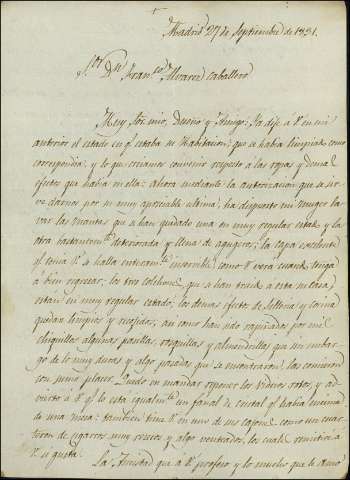 Madrid 27 de Septiembre de 1831.
Sor. Dn. Franco. Alvarez Caballero
Muy Sor. mio, Dueño y Amigo: Ya dije a V. en mi
anterior el estado en q. estaba su Habitacion, que se habia limpiado como
correspondia, y lo que creiamos convenir respecto á las ropas y demas
efectos que habia en ella: ahora mediante la autorizacion que se sir-
ve darnos por su muy apreciable ultima, ha dispuesto mi muger la-
var las mantas que se han quedado una en muy regular estado y la
otra bastante. deteriorada y llena de agugeros; la capa
q. tenia V. se halla enteramte. inservible, como V. verá cuando tenga
á bien regresar; los tres colchones, que se han traido a esta su casa,
estan en muy regular estado; los demas efectos de y cocina
quedan limpios y recogidos, asi como han sido por mis
chiquillos algunas pasillas, rosquillas y almendrillas que sin embar-
go de lo muy duras y algo pasadas que se encontraron, las comieron
con sumo placer. Quedo en mandar reponer los vidrios rotos, y ad-
vierto á V. q. lo está igualmte. un fanal de cristal q. habia encima
de una mesa: tambien tiene V. en uno de sus cajones como un cuar-
teron de cigarros muy secos y algo, los cuales remitiré á
V. si gusta.
La Amistad que á V. profeso y lo mucho que le amo